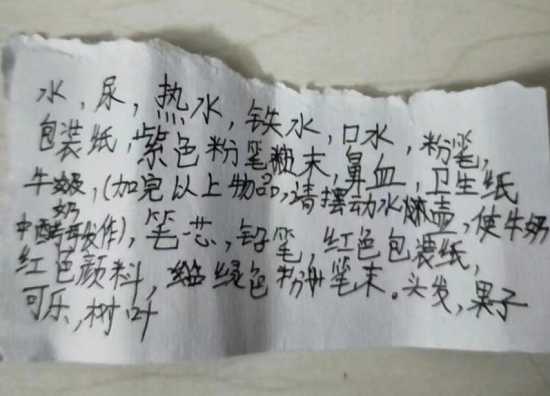 水，尿，热水，铁水，口水，粉笔，
包装纸，紫色粉笔粗末，鼻血，卫生纸
牛奶，(加完以上物品，请摆动水壶，使牛奶
奶
中酶再发作)，笔芯，铅笔，红色包装纸，
红色颜料，绿色粉笔末。头发，果子
可乐，树叶